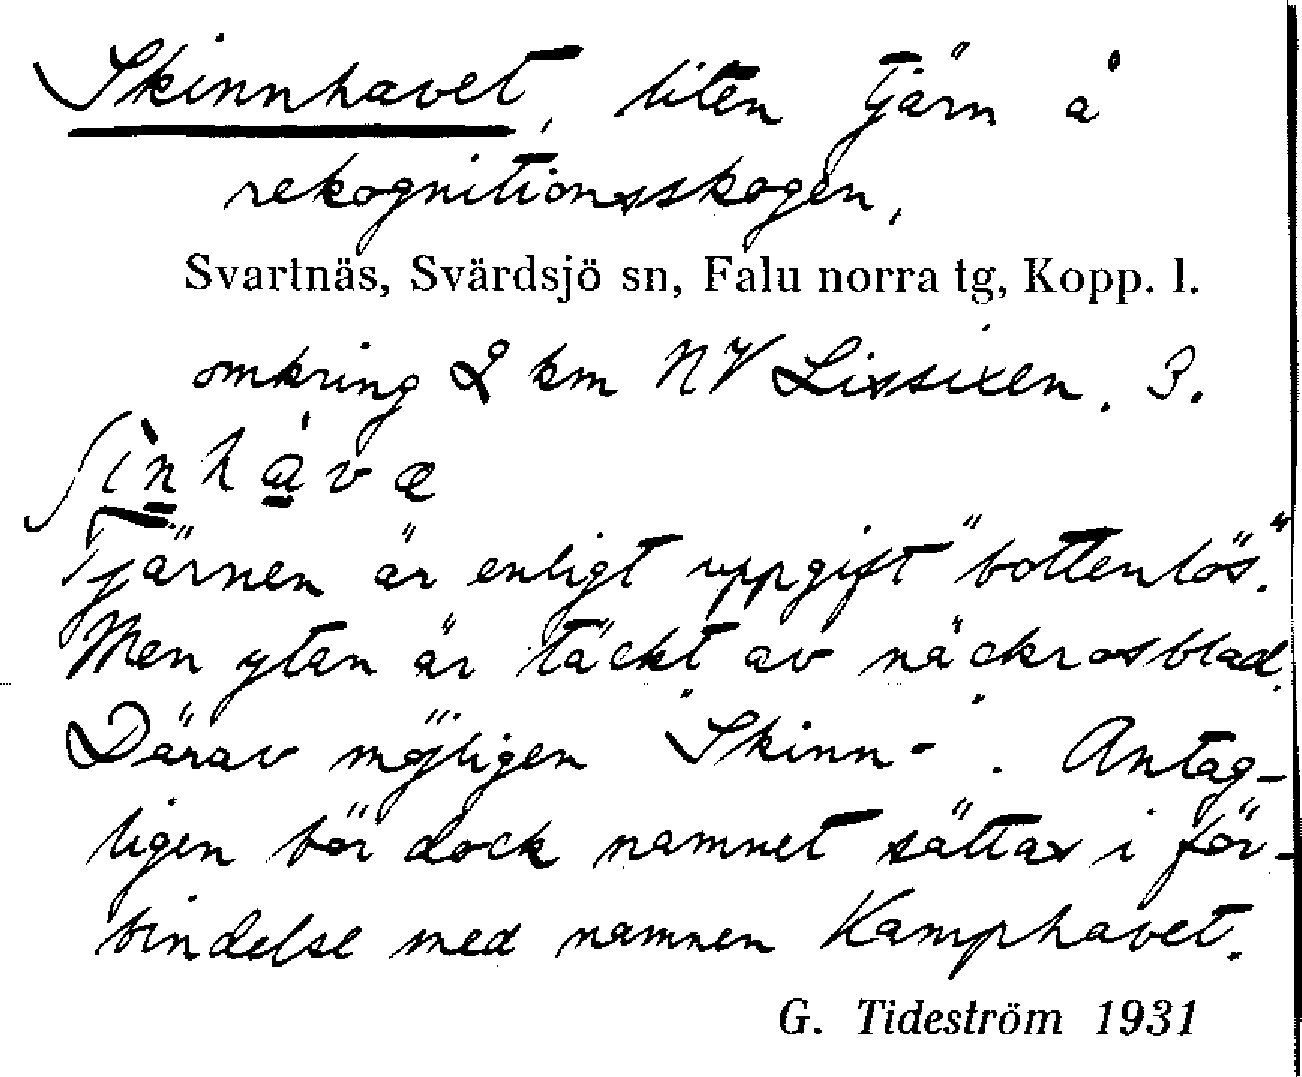 Skinnhavet, liten tjärn å
rekognitionsskogen,
Svartnäs, Svärdsjö sn, Falu norra tg, Kopp. l.
omkring 2 km NV Lissixen. 3.
ʃìnhávæ
Tjärnen är enligt uppgift "bottenlös".
Men ytan är täckt av näckrosblad.
Därav möjligen "Skinn-". Antag-
ligen bör dock namnet sättas i för-
bindelse med namnen Kamphavet.
G. Tideström 1931